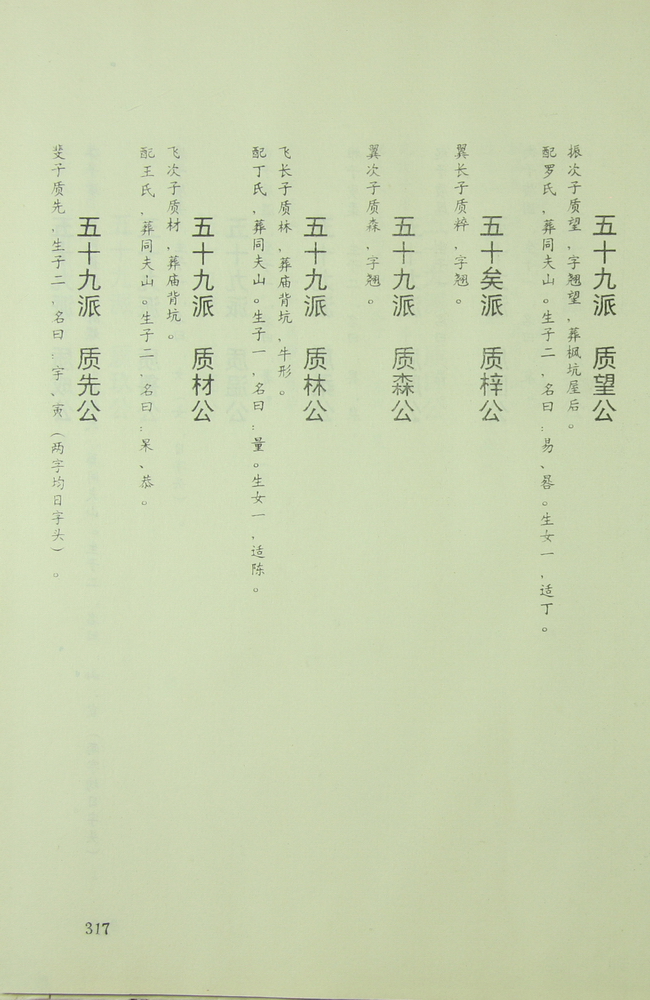 五十九派 质望公
振次子质望，字翘望，葬枫坑屋后。
配罗氏，葬同夫山。生子二，名曰：易、晷。生女一，适丁。
五十矣派 质梓公
翼长子质粹，字翘。
五十九派 质森公
翼次子质森，字翘。
五十九派 质林公
飞长子质林，葬庙背坑，牛形。
配丁氏，葬同夫山。生子一，名曰：量。生女一，适陈。
五十九派 质材公
飞次子质材，葬庙背坑。
配王氏，葬同夫山。生子二，名曰：杲、恭。
五十九派 质先公
斐子质先，生子二，名曰：字、寅（两字均日字头）。
317